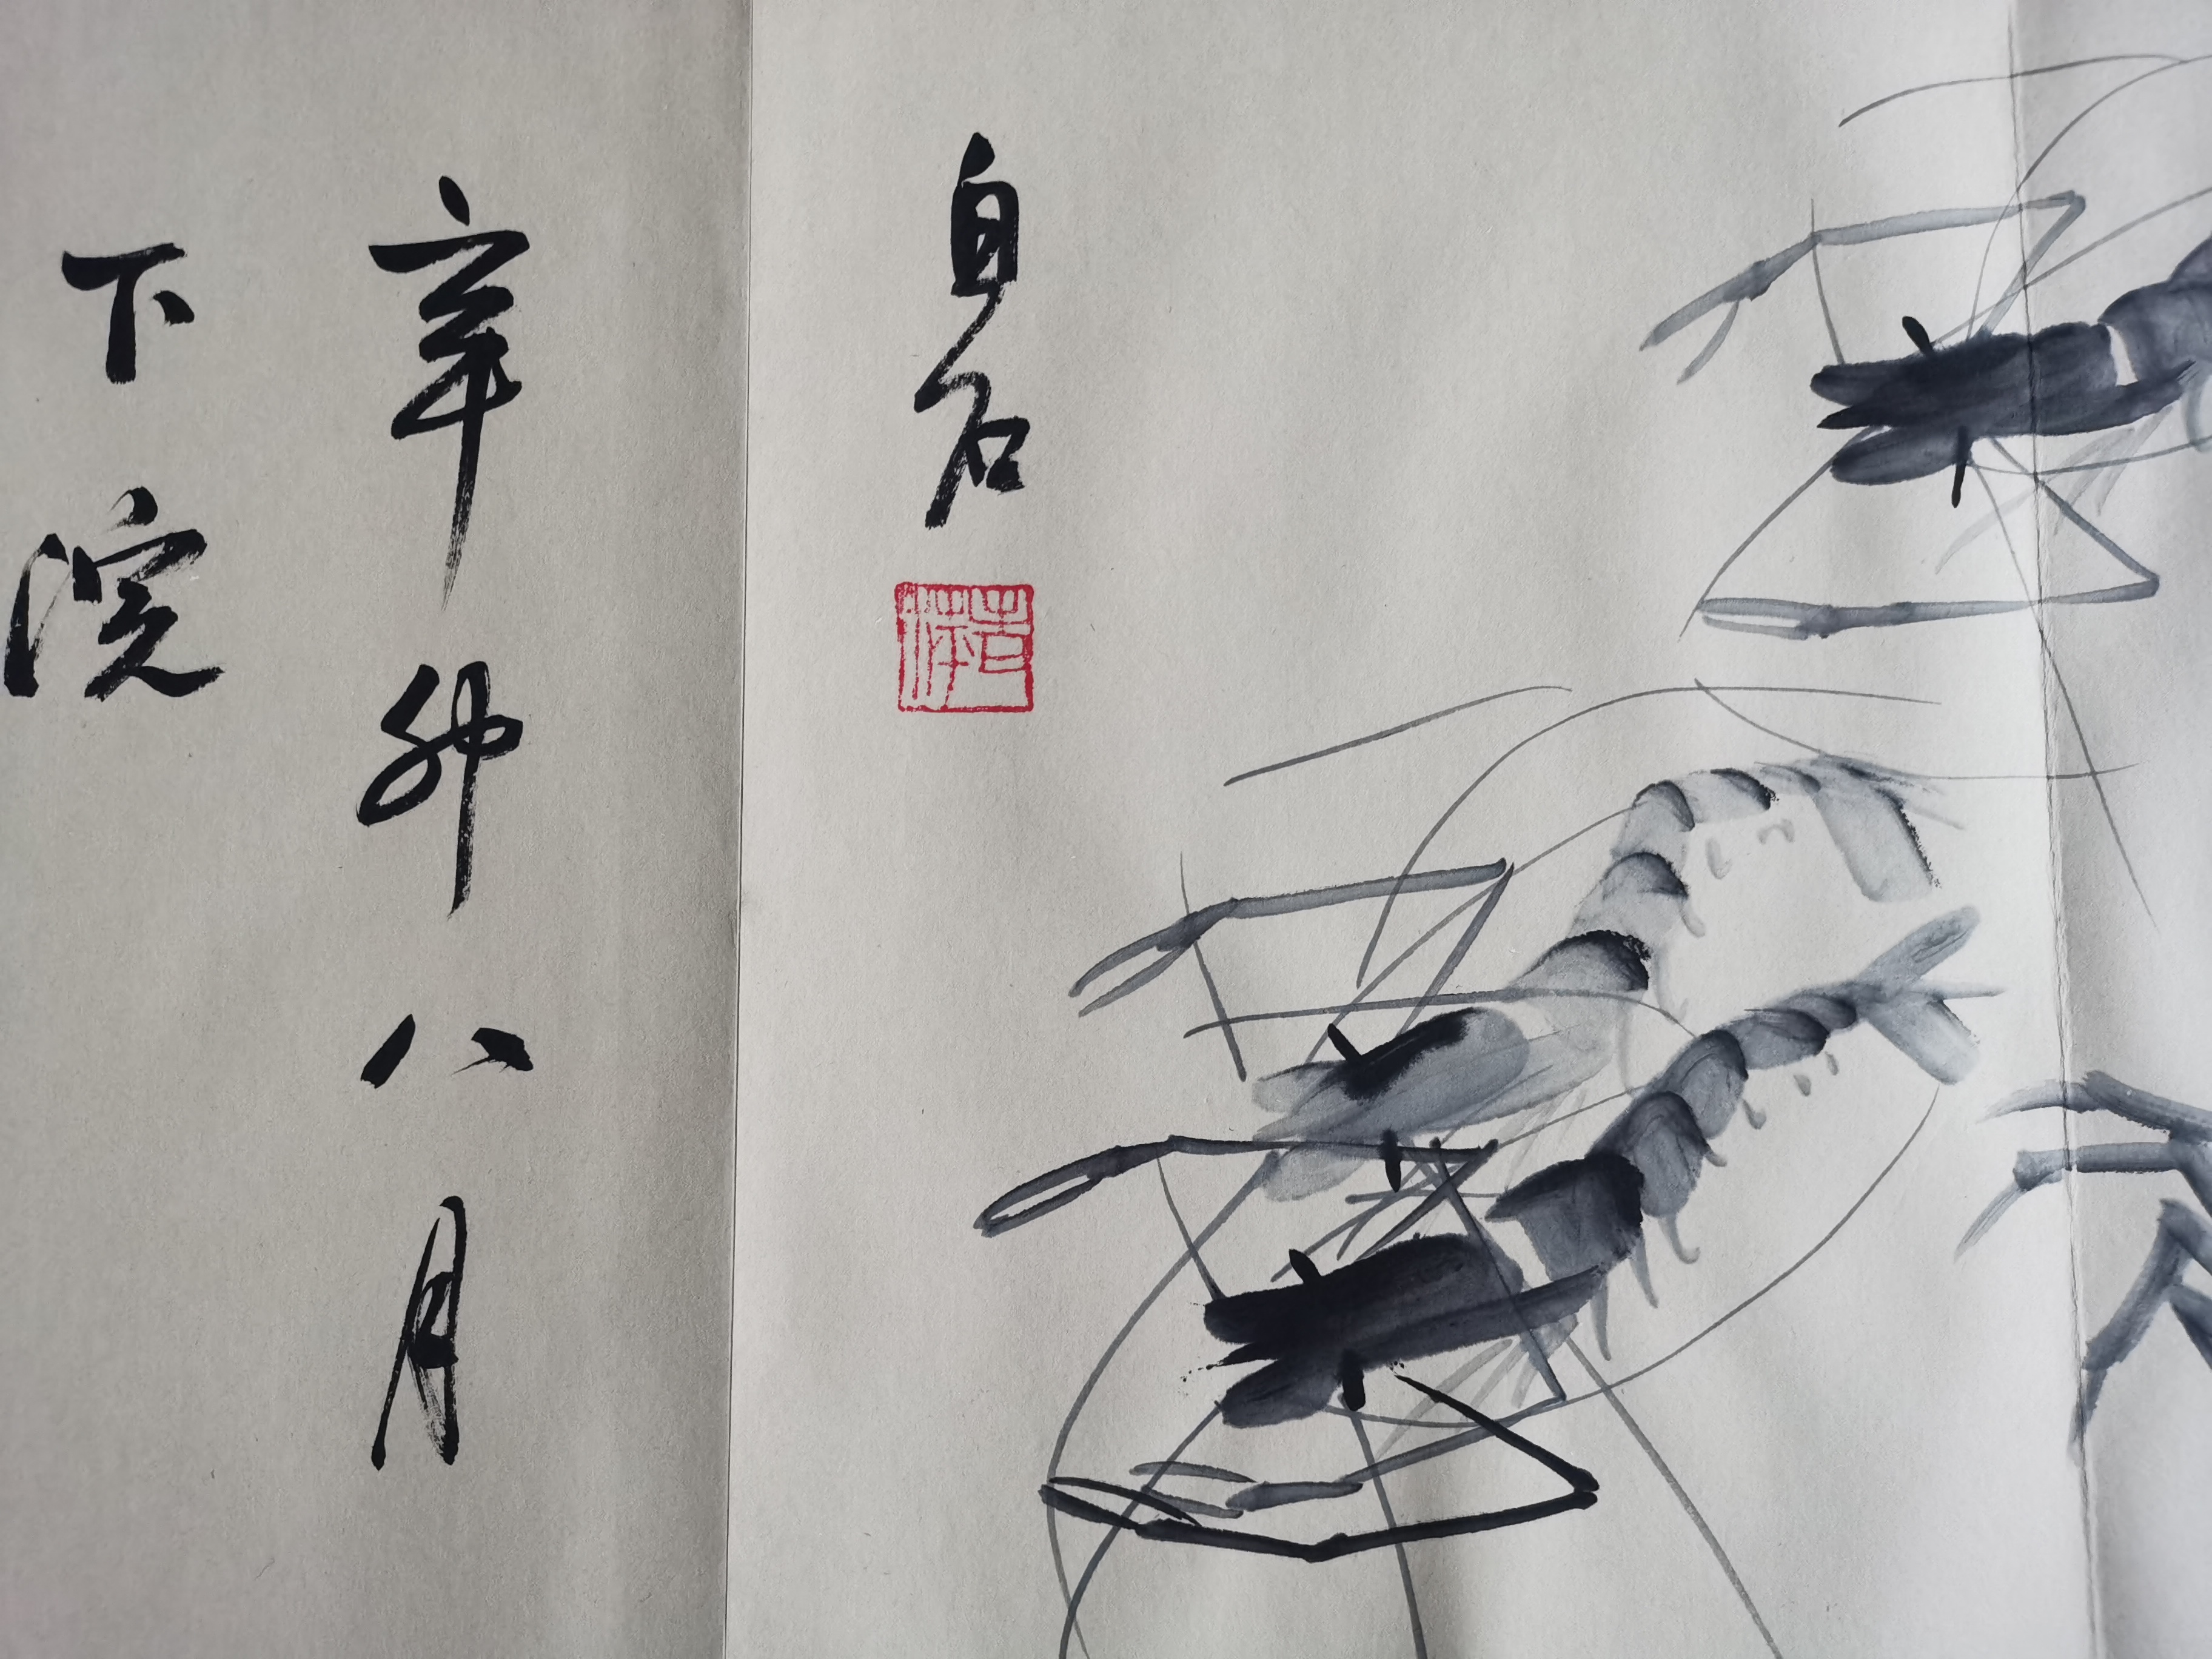 白石
辛卯八月
下浣